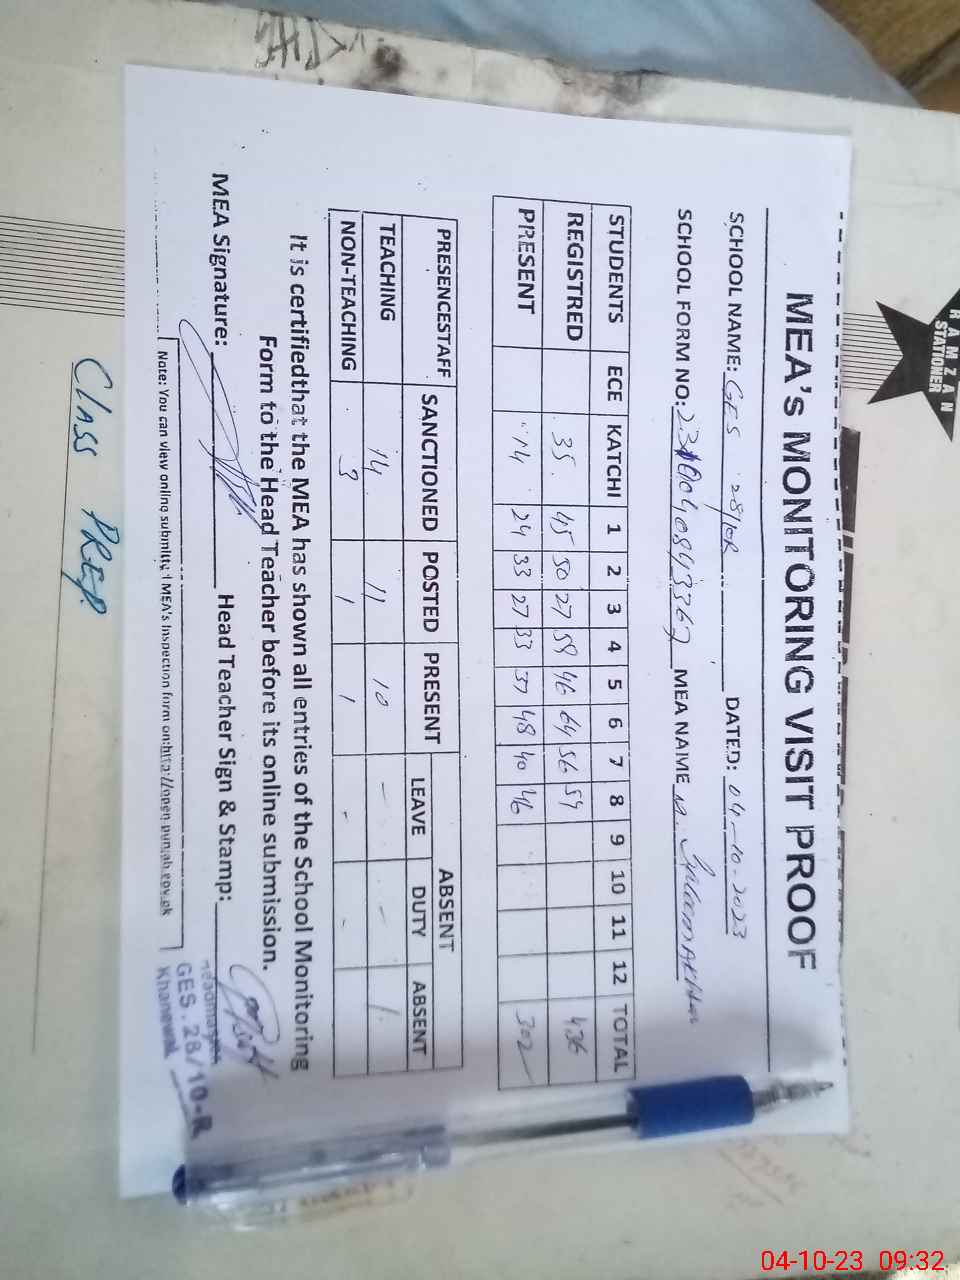 RAMZAN
STATIONER
MEA's MONITORING VISIT PROOF
SCHOOL NAME: GES 28/10R DATED: 04-10-2023
SCHOOL FORM NO: MEA NAME
STUDENTS ECE KATCHI 1 2 3 4 5 6 7 8 9 10 11 12 TOTAL
REGISTRED 35 45 30 27 58 46 64 56 59 436
PRESENT 14 24 33 27 33 37 48 40 46 302
PRESENCESTAFF SANCTIONED POSTED PRESENT ABSENT
LEAVE DUTY ABSENT
TEACHING 14 11 10 - - 1
NON-TEACHING 3 1 1 - -
It is certifiedthat the MEA has shown all entries of the School Monitoring
Form to the Head Teacher before its online submission.
MEA Signature: Head Teacher Sign & Stamp:
Headmaster
GES.28/10-R
Khanewal
Note: You can view online submitted MEA's Inspection form on:http://open.punjab.gov.pk
Class PREP.
04-10-23 09:32